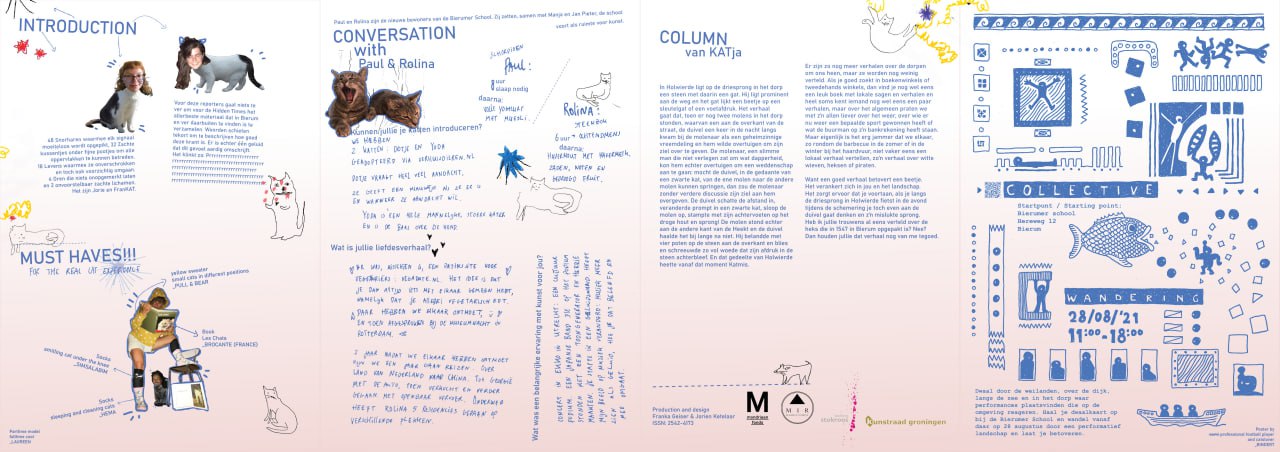 INTRODUCTION
Voor deze reporters gaat niets te
ver om voor de Hidden Times het
allerbeste materiaal dat in Bierum
en ver daarbuiten te vinden is te
verzamelen. Woorden schieten
tekort om te beschrijven hoe goed
deze krant is. Er is echter één geluid
dat dit gevoel aardig omschrijft.
Het klinkt zo:
48 Snorharen waarmee elk signaal
moeiteloos wordt opgepikt, 32 Zachte
kussentjes onder fijne pootjes om alle
oppervlakten te kunnen betreden.
18 Levens waarmee ze onverschrokken
en toch ook voorzichtig omgaan.
4 Oren die niets onopgemerkt laten
en 2 onvoorstelbaar zachte lichamen.
Het zijn Jorie en FranKAT.
MUST HAVES!!!
FOR THE REAL CAT EXPERIENCE
yellow sweater
small cats in different positions
_PULL & BEAR
Book
Les Chats
_BROCANTE (FRANCE)
Socks
smiling cat under the knee
_SIMSALABIM
Socks
sleeping and cleaning cats
_HEMA
Parttime model
fulltime cool
Paul en Rolina zijn de nieuwe bewoners van de Bierumer School. Zij zetten, samen met Manja en Jan Pieter, de school
voort als ruimte voor kunst.
CONVERSATION
with
Paul & Rolina
SCHORPIOEN
Paul:
8 uur
slaap nodig
daarna:
VOLLE YOGHURT
MET MUESLI.
Rolina:
STEENBOK
6 uur
daarna:
HAVERMOUT MET HAVERMELK,
ZADEN, NOTEN EN
GEDROOGD FRUIT.
Kunnen/jullie je katten introduceren?
WE HEBBEN
2 KATTEN DOTJE EN YODA
GEADOPTEERD VIA VERHUISDIEREN.NL
DOTJE VRAAGT HEEL VEEL AANDACHT.
ZE GEEFT EEN MAUWTJE ALS ZE ER IS
EN WANNEER ZE AANDACHT WIL.
YODA IS EEN HELE MANNELIJKE, STOERE KATER
EN IS DE BAAS OVER DE HOND.
Wat is jullie liefdesverhaal?
NAMELIJK DAT JE ALLEBEI VEGETARISCH EET.
DAAR HEBBEN WE ELKAAR ONTMOET,
ROTTERDAM.
2 JAAR NADAT WE ELKAAR HEBBEN ONTMOET
ZIJN WE EEN JAAR GAAN REIZEN. OVER
LAND VAN NEDERLAND NAAR CHINA. TOT GEORGIË
MET DE AUTO, TOEN VERKOCHT EN VERDER
GEGAAN MET OPENBAAR VERVOER. ONDERWEG
HEEFT ROLINA 5 RESIDENCIES GEDAAN OP
VERSCHILLENDE PLEKKEN.
Wat was een belangrijke ervaring met kunst voor jou?
COLUMN
van KATja
In Holwierde ligt op de driesprong in het dorp
een steen met daarin een gat. Hij ligt prominent
aan de weg en het gat lijkt een beetje op een
sleutelgat of een voetafdruk. Het verhaal
gaat dat, toen er nog twee molens in het dorp
stonden, waarvan een aan de overkant van de
straat, de duivel een keer in de nacht langs
kwam bij de molenaar als een geheimzinnige
vreemdeling en hem wilde overtuigen om zijn
ziel over te geven. De molenaar, een slimme
man die niet verlegen zat om wat dapperheid,
kon hem echter overtuigen om een weddenschap
aan te gaan: mocht de duivel, in de gedaante van
een zwarte kat, van de ene molen naar de andere
molen kunnen springen, dan zou de molenaar
zonder verdere discussie zijn ziel aan hem
overgeven. De duivel schatte de afstand in,
veranderde prompt in een zwarte kat, sloop de
molen op, stampte met zijn achtervoeten op het
droge hout en sprong! De molen stond echter
aan de andere kant van de Heekt en de duivel
haalde het bij lange na niet. Hij belandde met
vier poten op de steen aan de overkant en blies
en schreeuwde zo vol woede dat zijn afdruk in de
steen achterbleef. En dat gedeelte van Holwierde
heette vanaf dat moment Katmis.
Er zijn zo nog meer verhalen over de dorpen
om ons heen, maar ze worden nog weinig
verteld. Als je goed zoekt in boekenwinkels of
tweedehands winkels, dan vind je nog wel eens
een leuk boek met lokale sagen en verhalen en
heel soms kent iemand nog wel eens een paar
verhalen, maar over het algemeen praten we
met z'n allen liever over het weer, over wie er
nu weer een bepaalde sport gewonnen heeft of
wat de buurman op z'n bankrekening heeft staan.
Maar eigenlijk is het erg jammer dat we elkaar
zo rondom de barbecue in de zomer of in de
winter bij het haardvuur, niet vaker eens een
lokaal verhaal vertellen, zo'n verhaal over witte
wieven, heksen of piraten.
Want een goed verhaal betovert een beetje.
Het verankert zich in jou en het landschap.
Het zorgt ervoor dat je voortaan, als je langs
de driesprong in Holwierde fietst in de avond
tijdens de schemering je toch even aan de
duivel gaat denken en z'n mislukte sprong.
Heb ik jullie trouwens al eens verteld over de
heks die in 1547 in Bierum opgepakt is? Nee?
Dan houden jullie dat verhaal nog van me tegoed.
Production and design
Franka Geiser & Jorien Ketelaar
ISSN: 2542-4173
M
mondriaan
fonds
M I R
kunstraad groningen
COLLECTIVE
Startpont / Starting point:
Bierumer school
Hereweg 12
Bierum
WANDERING
28/08/'21
11:00-18:00
Dwaal door de weilanden, over de dijk,
langs de zee en in het dorp waar
performances plaatsvinden die op de
omgeving reageren. Haal je dwaalkaart op
bij de Bierumer School en wandel vanaf
daar op 28 augustus door een performatief
landschap en laat je betoveren.
Poster by
www.professional.football.player
and catlover